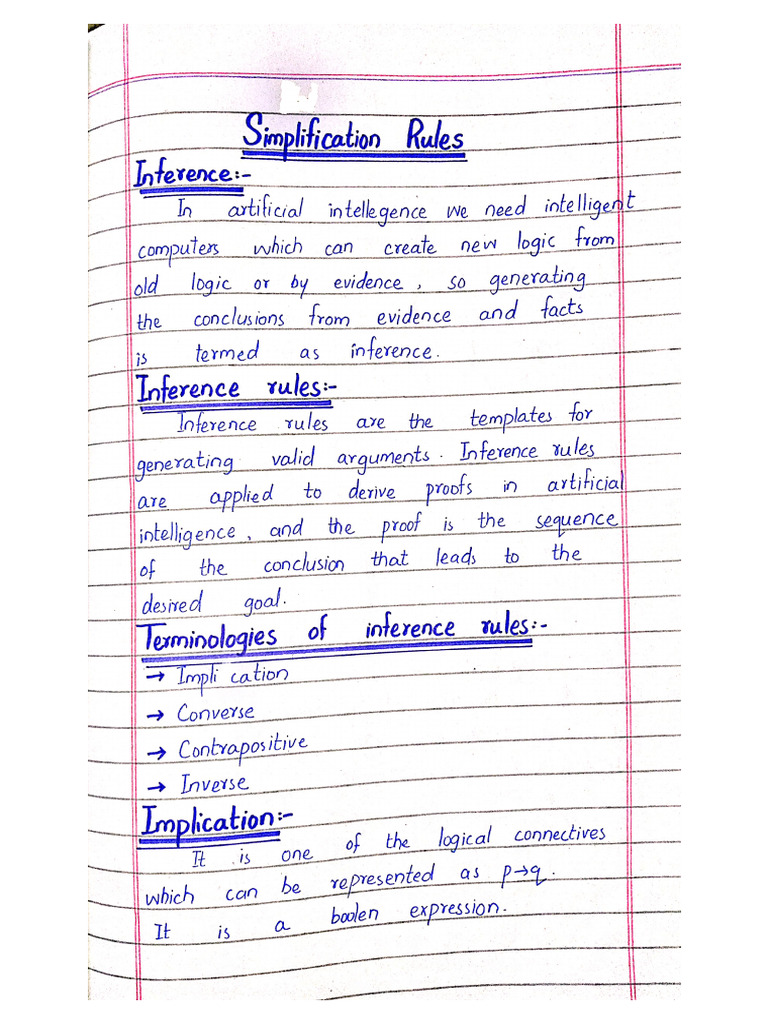 Simplification Rules
Inference:-
In artificial intellegence we need intelligent
computers which can create new logic from
old logic or by evidence, so generating
the conclusions from evidence and facts
is termed as inference.
Inference rules:-
Inference rules are the templates for
generating valid arguments. Inference rules
are applied to derive proofs in artificial
intelligence, and the proof is the sequence
of the conclusion that leads to the
desired goal.
Terminologies of inference rules:-
→ Impli cation
→ Converse
→ Contrapositive
→ Inverse
Implication:-
It is one of the logical connectives
which can be represented as p→q.
It is a boolen expression.